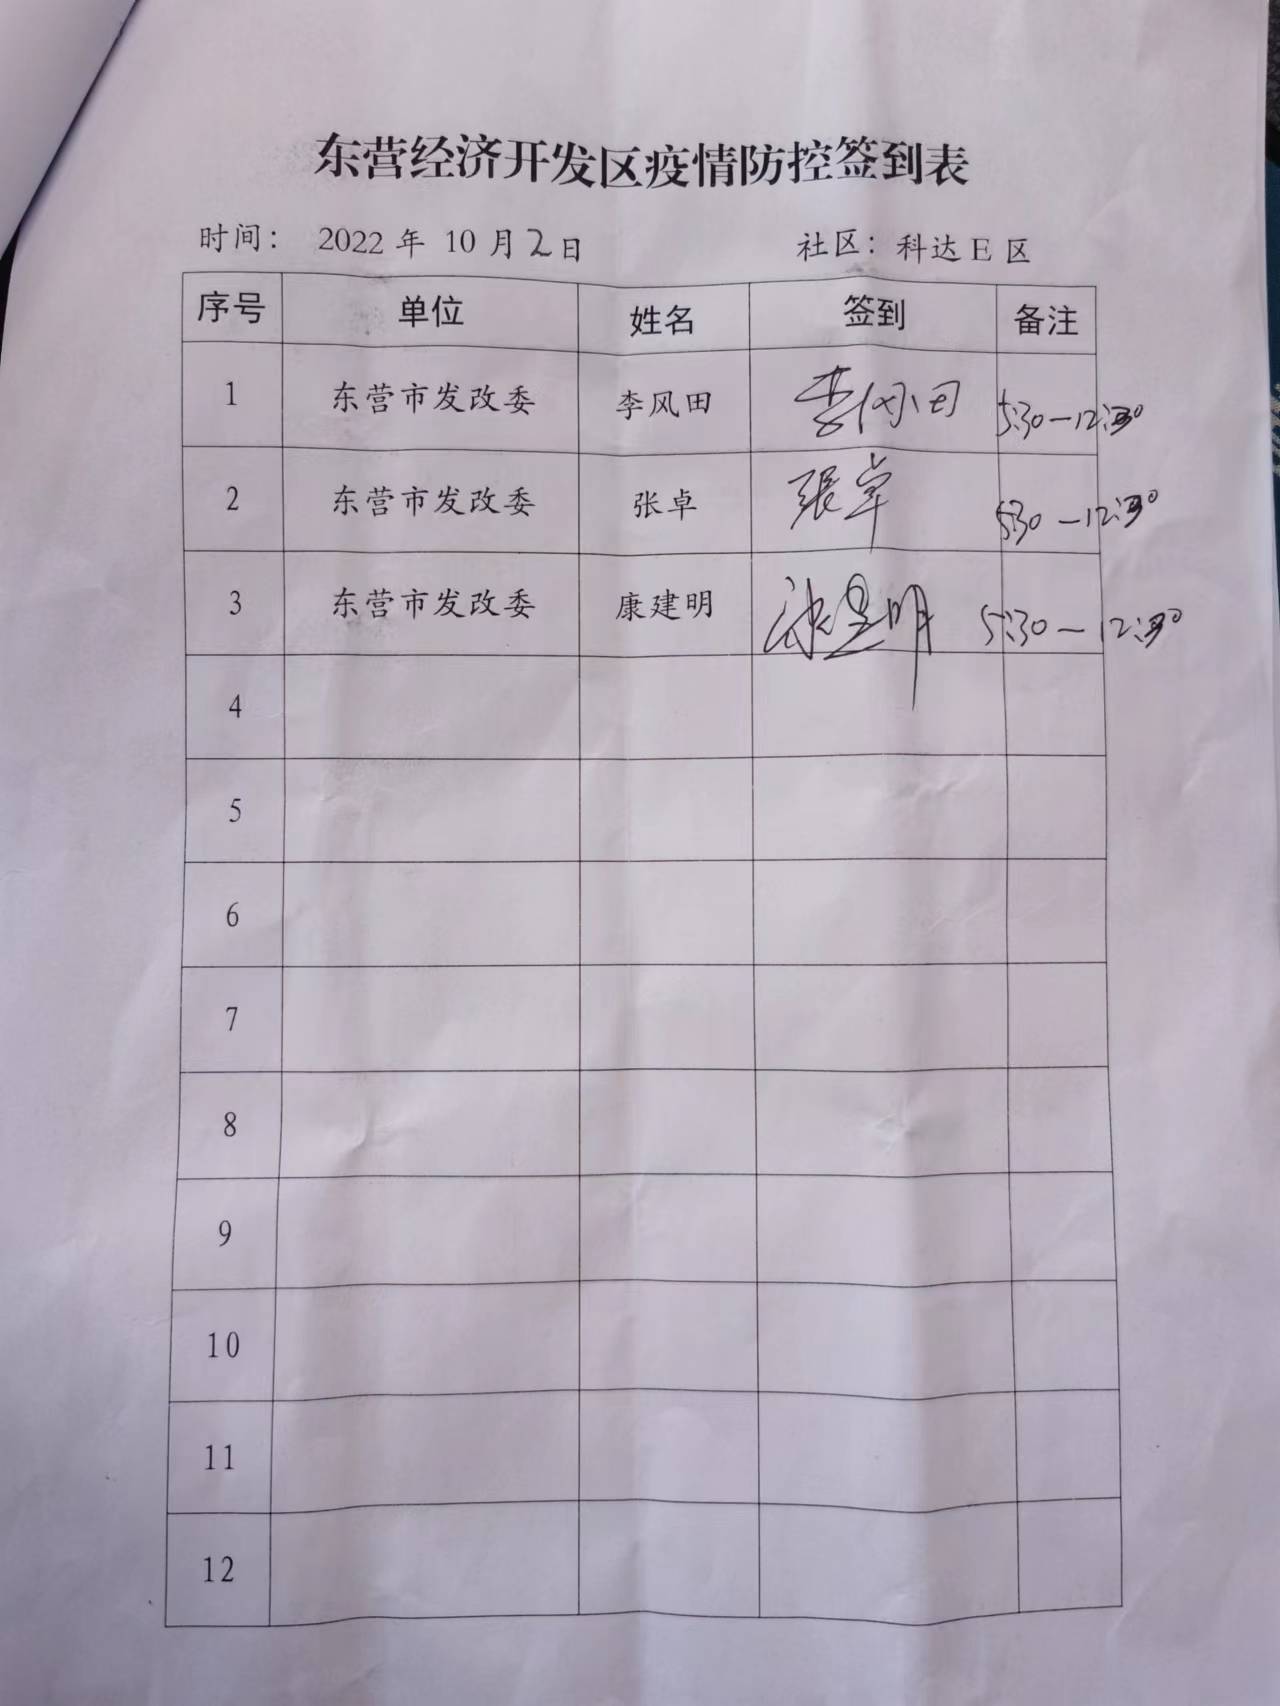 东营经济开发区疫情防控签到表
时间： 2022 年 10 月 2 日 社区：科达 E 区
序号 单位 姓名 签到 备注
1 东营市发改委 李风田 李风田 5:30-12:30
2 东营市发改委 张卓 張卓 5:30-12:30
3 东营市发改委 康建明 康建明 5:30-12:30
4
5
6
7
8
9
10
11
12